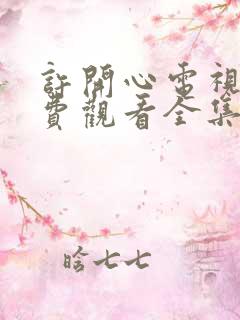 許開心電視
費觀看全集
啥七七